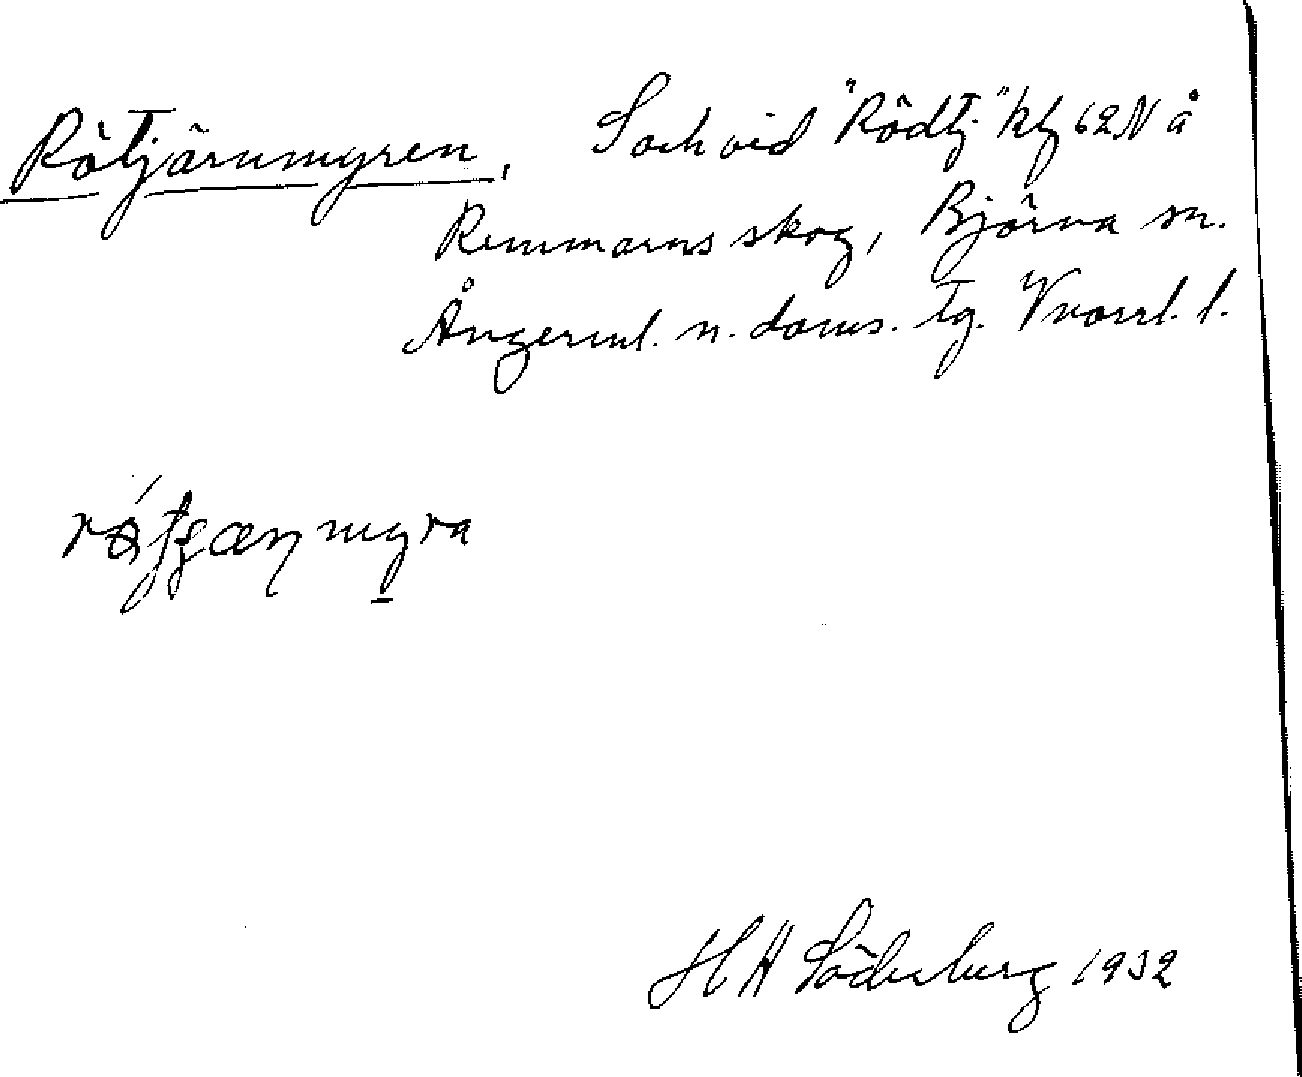 Rötjärnmyren, S och vid "Rödtj" kbf 62 N å
Remmarns skog, Björna sn.
Ångerml. n. doms. tg. Vnorrl. l.
myra
HH Söderberg 1932